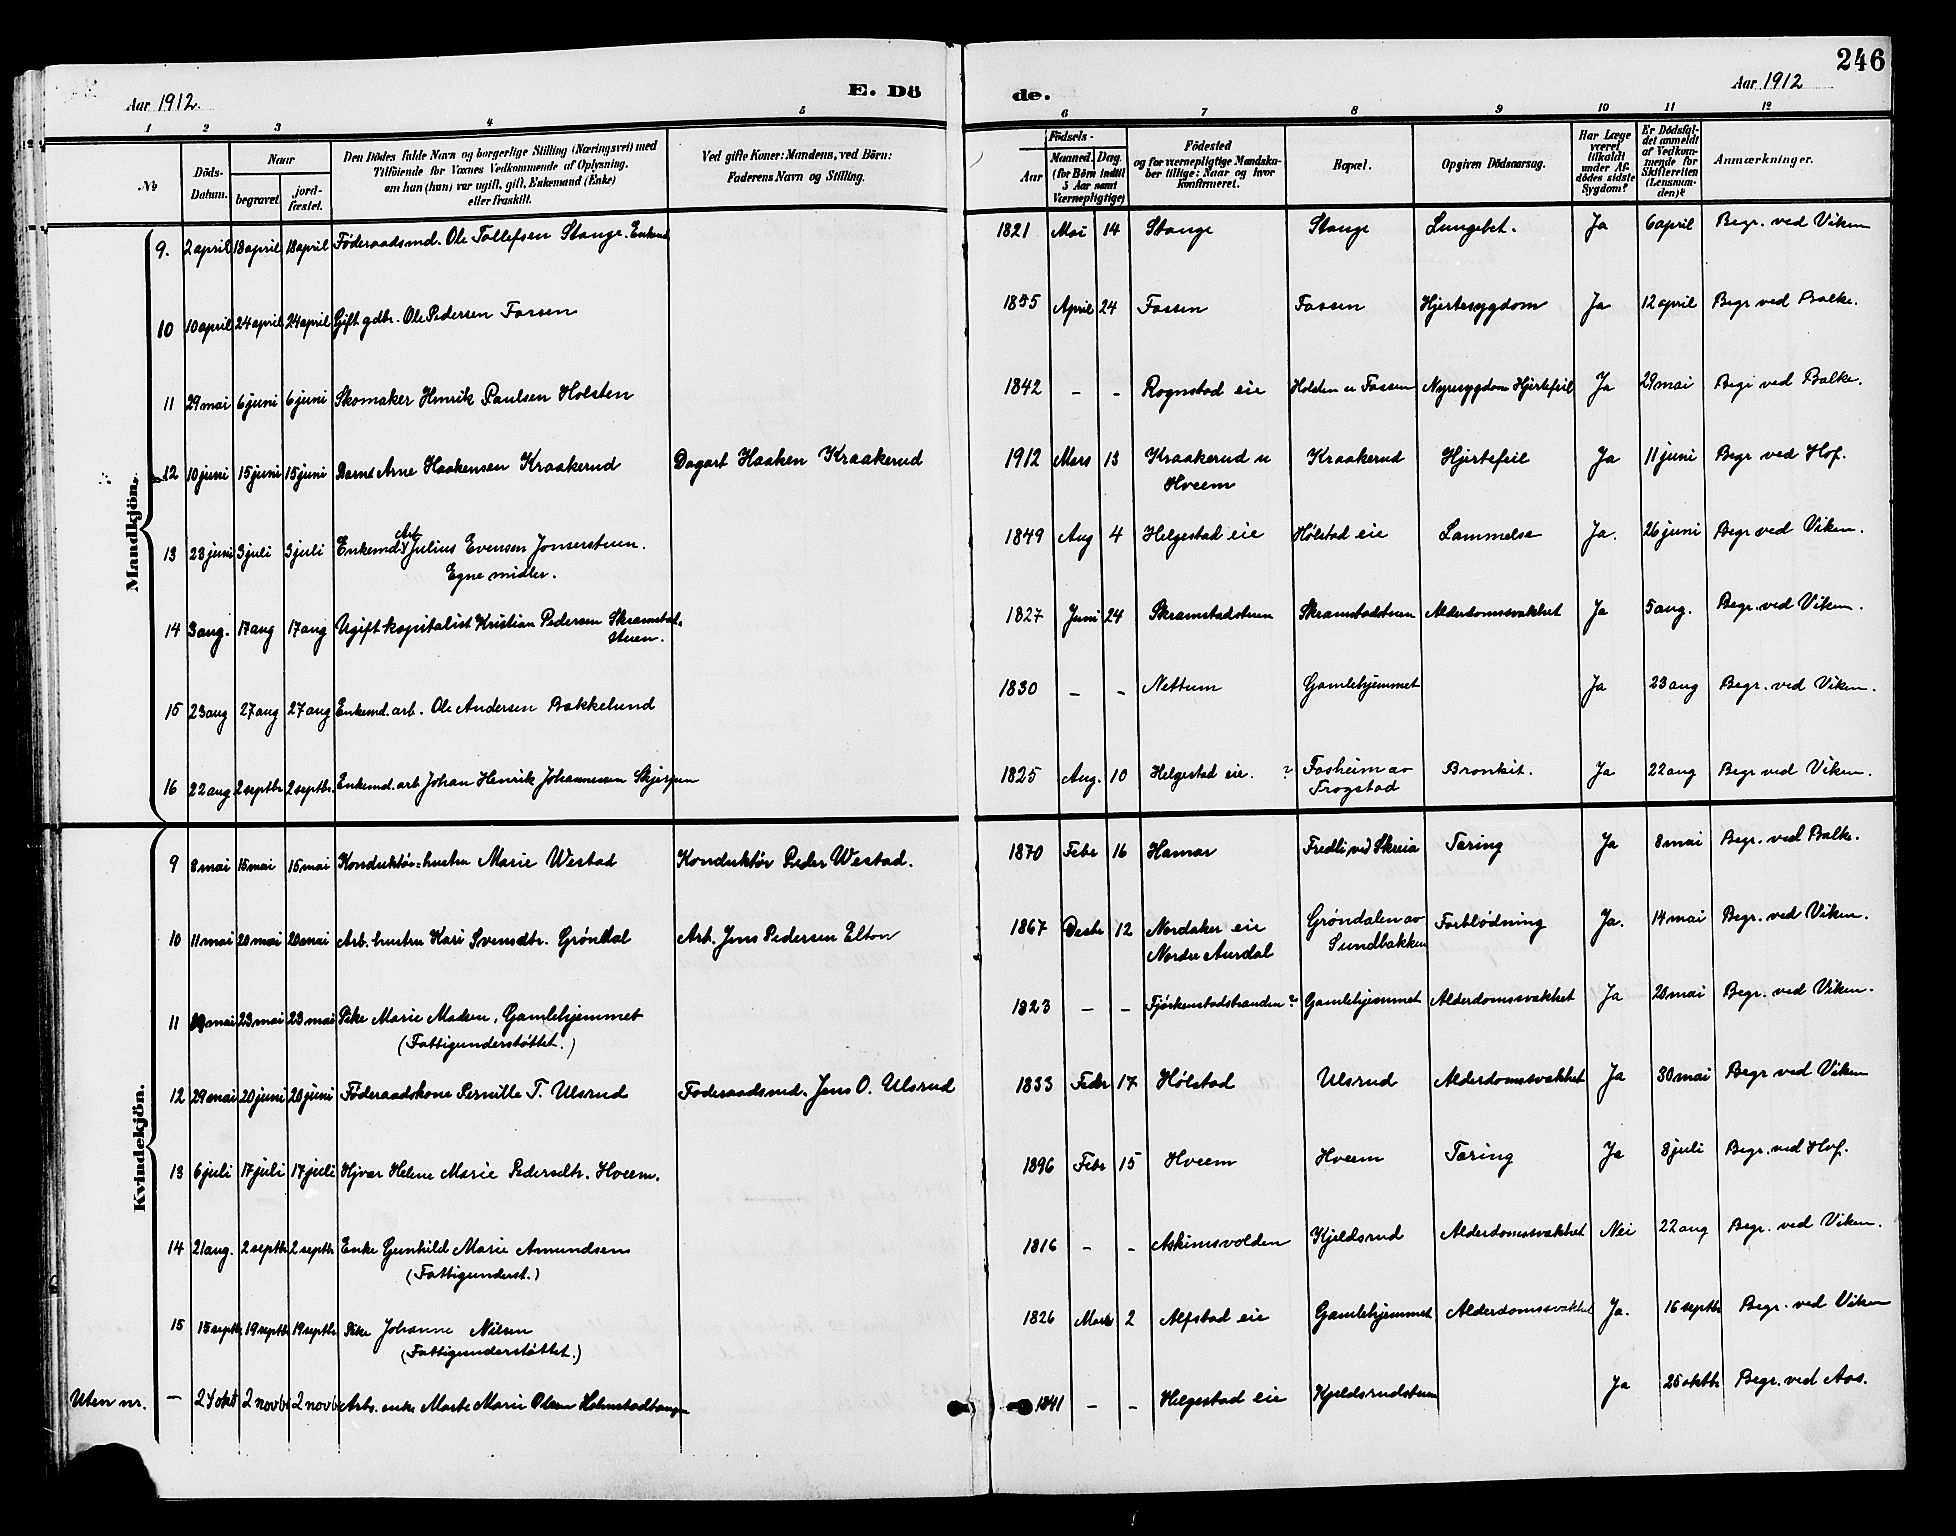 246
Aar 1912.
E. Dö
de.
Aar 1912
1 2 3 4 5 6 7 8 9 10 11 12
No
Döds-Datum.
Naar
begravet.
jord-fæstet.
Den Dödes fulde Navn og borgerlige Stilling (Næringsvei) med
Tilföiende for Voxnes Vedkommende af Oplysning,
om han (hun) var ugift, gift, Enkemand (Enke)
eller fraskilt.
Ved gifte Koner: Mandens, ved Börn:
Faderens Navn og Stilling.
Födsels-
Aar
Maaned. Dag.
(for Börn indtil
5 Aar samt
Værnepligtige)
Födested
og for værnepligtige Mandska-
ber tillige: Naar og hvor
konfirmeret.
Bopæl.
Opgiven Dödsaarsag.
Har Læge
været
tilkaldt
under Af-
dödes sidste
Sygdom?
Er Dödsfal-
det anmeldt
af Vedkom-
mende for
Skifteretten
(Lensman-
den)?
Anmærkninger.
Mandkjön.
9. 2 april 18 april 18 april Føderaadsmd. Ole Tollefsen Stange. Enkemd 1821 Mai 14 Stange Stange Lungebet. Ja 6 april Begr. ved Viken
10 10 april 24 april 24 april Gift gdbr. Ole Pedersen Fossen 1855 April 24 Fossen Fossen Hjertesygdom Ja 12 april Begr ved Balke.
11 29 mai 6 juni 6 juni Skomaker Henrik Paulsen Holsten 1842 - - Rognstad eie Holsten u Fossen Nyresygdom Hjertefeil Ja 29 mai Begr ved Balke.
12 10 juni 15 juni 15 juni Barnet Arne Haakensen Kraakerud Dagarb Haaken Kraakerud 1912 Mars 13 Kraakerud u Kraakerud Hjertefeil Ja 11 juni Begr ved Hof.
Hveem
13 23 juni 3 juli 3 juli Enkemd Arb. Julius Evensen Jonserstuen. 1849 Aug 4 Helgestad eie Hølstad eie Lammelse Ja. 26 juni Begr ved Viken.
Egne midler.
14 3 aug. 17 aug 17 aug Ugift kapitalist Kristian Pedersen Skramstad- 1827 Juni 24 Skramstadstuen Skramstadstuen Alderdomssvakhet Ja 5 aug. Begr. ved Viken.
stuen.
15 23 aug 27 aug 27 aug Enkemd. arb. Ole Andersen Bakkelund 1830 - - Nettum Gamlehjemmet Ja 23 aug Begr. ved Viken.
16 22 aug 2 septbr 2 septbr. Enkemd. arb Johan Henrik Johannessen 1825 Aug. 10 Helgestad eie. ? Fosheim av Bronkit. Ja 22 aug Begr ved Viken.
Frogstad
Kvindekjön.
9 8 mai 15 mai 15 mai Konduktør-hustru Marie Westad Konduktør Peder Westad. 1870 Febr 16 Hamar Fredli ved Skreia Tæring Ja 8 mai Begr. ved Balke.
10 11 mai 20 mai 20 mai Arb. hustru Kari Svensdtr. Grøndal Arb. Jens Pedersen Elton 1867 Desbr 12 Nordaker eie Grøndalen av Forblødning Ja. 14 mai Begr. ved Viken.
Nordre Aurdal Sundbakken
11 mai 23 mai 23 mai Pike Marie Madsen, Gamlehjemmet 1823 - - Fjørkenstadstranden ? Gamlehjemmet Alderdomssvakhet Ja 20 mai Begr. ved Viken.
(Fattigunderstøttet.)
12 29 mai 20 juni 20 juni Føderaadskone Pernille T. Ulsrud Føderaadsmd. Jens O. Ulsrud 1833 Febr 17 Hølstad Ulsrud Alderdomssvakhet Ja 30 mai Begr ved Viken
13 6 juli 17 juli 17 juli Helene Marie Pedersdtr. Hveem. 1896 Febr 15 Hveem Hveem Tæring Ja 8 juli Begr. ved Hof.
14 21 aug. 2 septbr 2 septbr Enke Gunhild Marie Amundsen 1816 - - Askimsvolden Kjeldsrud Alderdomssvakhet Nei 22 aug Begr. ved Viken.
(Fattigunderst.)
15 15 septbr 19 septbr 19 septbr Pike Johanne Nilsen 1826 Mars 2 Alfstad eie Gamlehjemmet Alderdomssvakhet Ja. 16 septbr Begr. ved Viken
(Fattigunderstøttet.)
Uten nr. - 24 okt 2 novb 2 novb Arb. enke Marte Marie Olsen Holmstadtangen 1841 - - Helgestad eie Kjeldsrudstuen Ja 25 oktbr Begr. ved Aas.